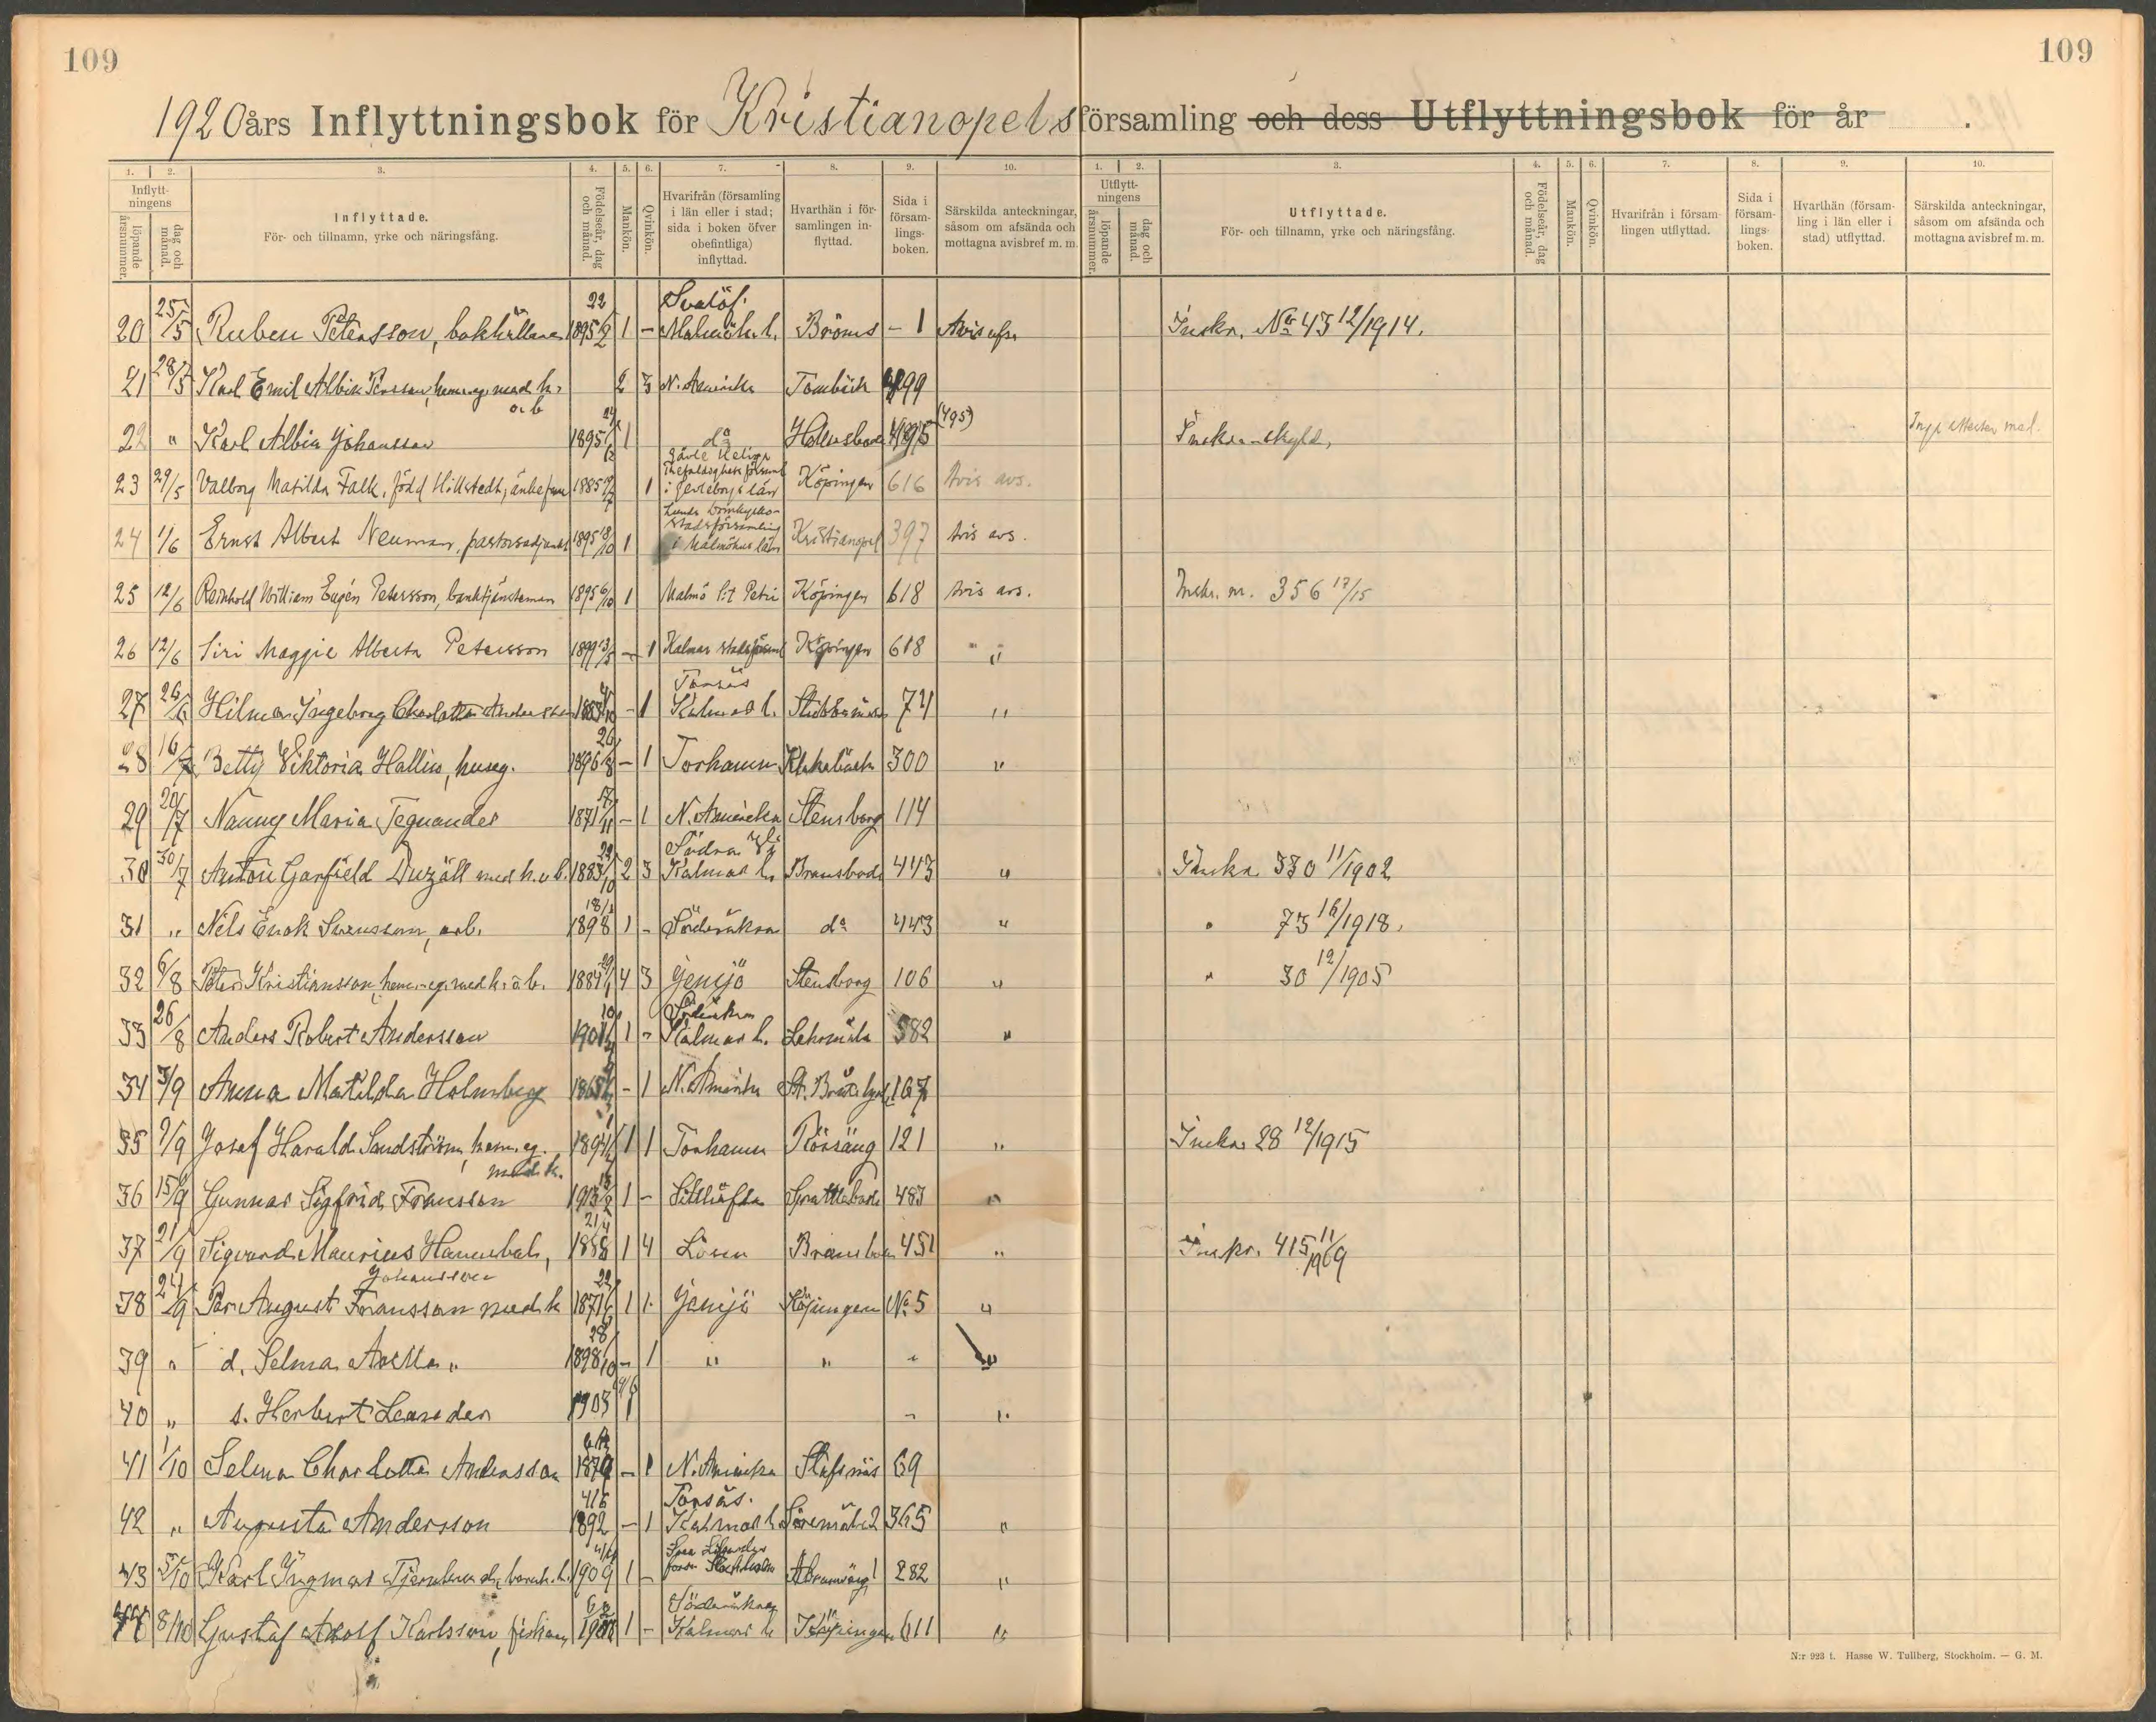 109
109
1920 års Inflyttningsbok för Kristianopels församling och dess Utflyttningsbok för år .
1. 2. 3. 4. 5. 6. 7. 8. 9. 10. 1. 2. 3. 4. 5. 6. 7. 8. 9. 10.
Inflyttningens
löpande årsnummer.
dag och månad.
Inflyttade.
För- och tillnamn, yrke och näringsfång.
Födelseår, dag och månad.
Mankön.
Qvinkön.
Hvarifrån (församling i län eller i stad; sida i boken öfver obefintliga) inflyttad.
Hvarthän i församlingen inflyttad.
Sida i församlingsboken.
Särskilda anteckningar, såsom om afsända och mottagna avisbref m. m.
Utflyttningens
löpande årsnummer.
dag och månad.
Utflyttade.
För- och tillnamn, yrke och näringsfång.
Födelseår, dag och månad.
Mankön.
Qvinkön.
Hvarifrån i församlingen utflyttad.
Sida i församlingsboken.
Hvarthän (församling i län eller i stad) utflyttad.
Särskilda anteckningar, såsom om afsända och mottagna avisbref m. m.
20 25/5 Ruben Petersson, bokhållare 1895 22/2 1 - Svalöf. Malmöh. l. Bröms - 1 Avis afs. Inskr. No 43 12/1914.
21 28/5 Karl Emil Albin Persson, hem.eg. med h. o. b 2 3 N. Amerika Tombäck 99
22 " Karl Albin Johansson 1895 1 do 495 (495) Inskr.-skyld,
23 29/5 Valborg Matilda Falk, född Hillstedt, änkefru 1885 1 Gävle Helga Trefaldighets församl i Gävleborgs län Köpingen 616 Avis avs.
24 1/6 Ernst Albert Neuman, pastorsadjunkt 1895 18/10 1 Lunds Domkyrko- stadsförsamling i Malmöhus län Kristianopel 397 Avis avs.
25 12/6 Reinhold William Eugén Petersson, banktjänsteman 1895 6/10 1 Malmö S:t Petri Köpingen 618 Avis avs. Inskr. nr. 356 17/15
26 12/6 Siri Maggie Alberta Petersson 1899 13/5 - 1 Kalmar stadsförsaml Köpingen 618 "
27 26/6 Hilma Ingeborg Charlotta Andersson 1883 - 1 Torsås Kalmar l. 74 "
28 16/7 Betty Viktoria Hallin, huseg. 1896 26/8 - 1 Torhamn 300 "
29 20/7 Nanny Maria Tegnander 1871 - 1 N. Amerika Stensborg 114
30 30/7 Anton Garfield Duzäll med h. o b. 1883 29/10 2 3 Södra Kalmar l. Bransboda 443 " Inskr. 330 11/1902
31 " Nils Enok Svensson, arb. 1898 1 - Söderåkra do 443 " " 73 16/1918.
32 6/8 Peter Kristiansson, hem.-eg. med h. o b. 1884 4 3 Jemjö Stensborg 106 " " 30 12/1905
33 26/8 Anders Robert Andersson 1901 1 - Söderåkra Kalmar l. 382 "
34 3/9 Anna Matilda Holmberg 1865 - 1 N. Amerika 167
35 9/9 Josef Harald Sandström, hem.eg. med h. 1894 1 1 Torhamn Rörsäng 121 " Inskr. 28 12/1915
36 15/9 Gunnar Sigfrid Fransson 1913 1 - Sillhöfda 483 "
37 21/9 Sigvard Maurius Hammbal, 1888 21/4 1 4 Lösen 451 " Inskr. 415 11/1909
38 24/9 Per August Fransson Johansson med h 1871 1 1. Jemjö Köpingen No. 5 "
39 " d. Selma " 1898 28/10 - 1 " " " "
40 " s. Herbert Leander 1903 1 "
41 1/10 Selma Charlotta Andersson 1879 - 1 N. Amerika Stufsnäs 69
42 " Augusta Andersson 1892 4/6 - 1 Torsås. Kalmar l 2 365 "
43 5/10 Karl Ingmar 1909 1 - Stockholm 282 "
44 8/10 Gustaf Adolf Karlsson, 1 - Söderåkra Kalmar l. Köpingen 611 "
N:r 923 t. Hasse W. Tullberg, Stockholm. — G. M.